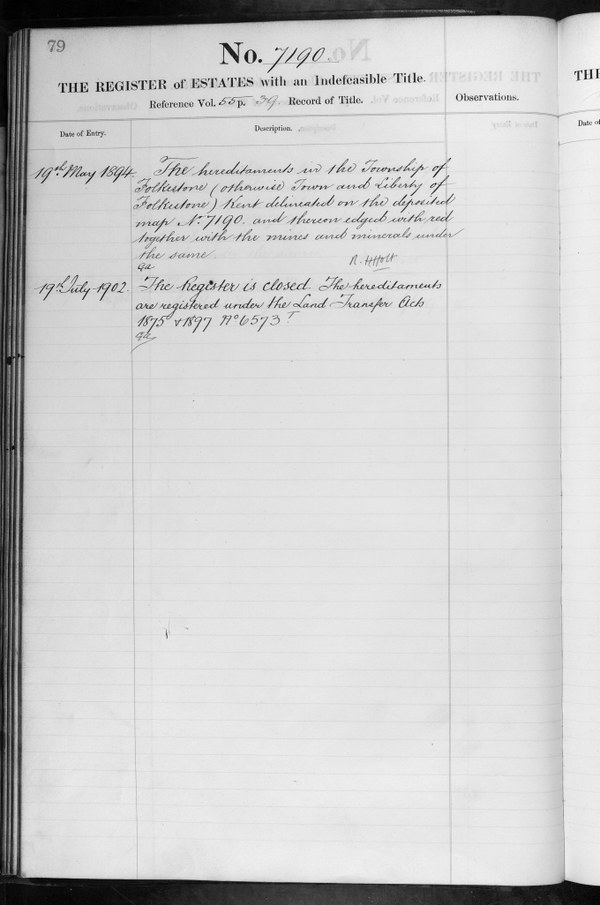 79
No. 7190.
THE REGISTER of ESTATES with an Indefeasible Title.
Reference Vol. 55 p. 39. Record of Title.
Observations.
Date of Entry.
Description.
19th May 1894
The hereditaments in the Township of
Folkestone (otherwise Town and Liberty of
Folkestone) Kent delineated on the deposited
map No. 7190. and thereon edged with red
together with the mines and minerals under
the same.
R. H. Holt
19th July 1902.
The Register is closed. The hereditaments
are registered under the Land Transfer Acts
1875 & 1897 No 6573
THE
Date of